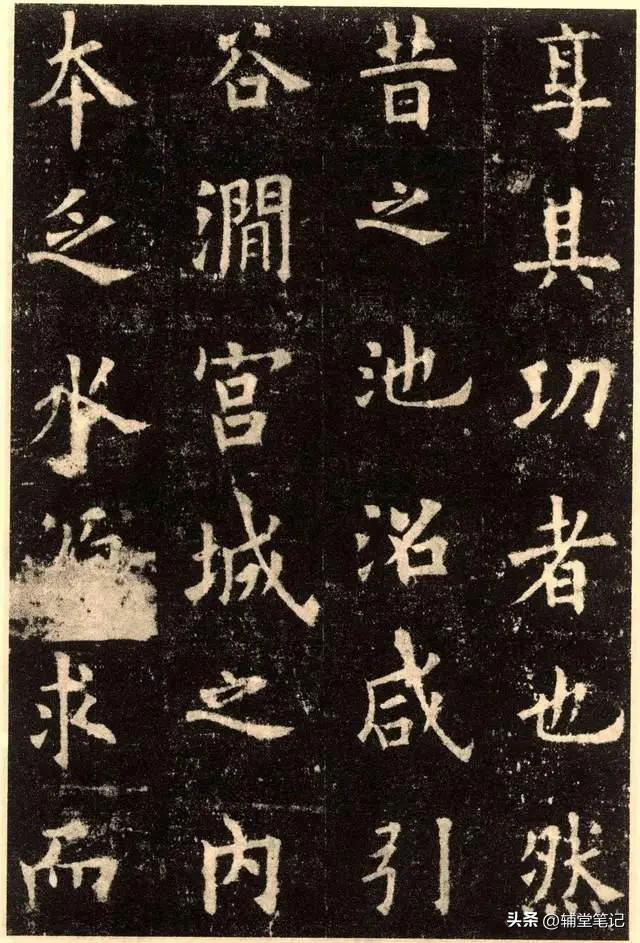 享其功者也然
昔之池沼咸引
谷澗宮城之内
本乏水求而
头条 @辅堂笔记